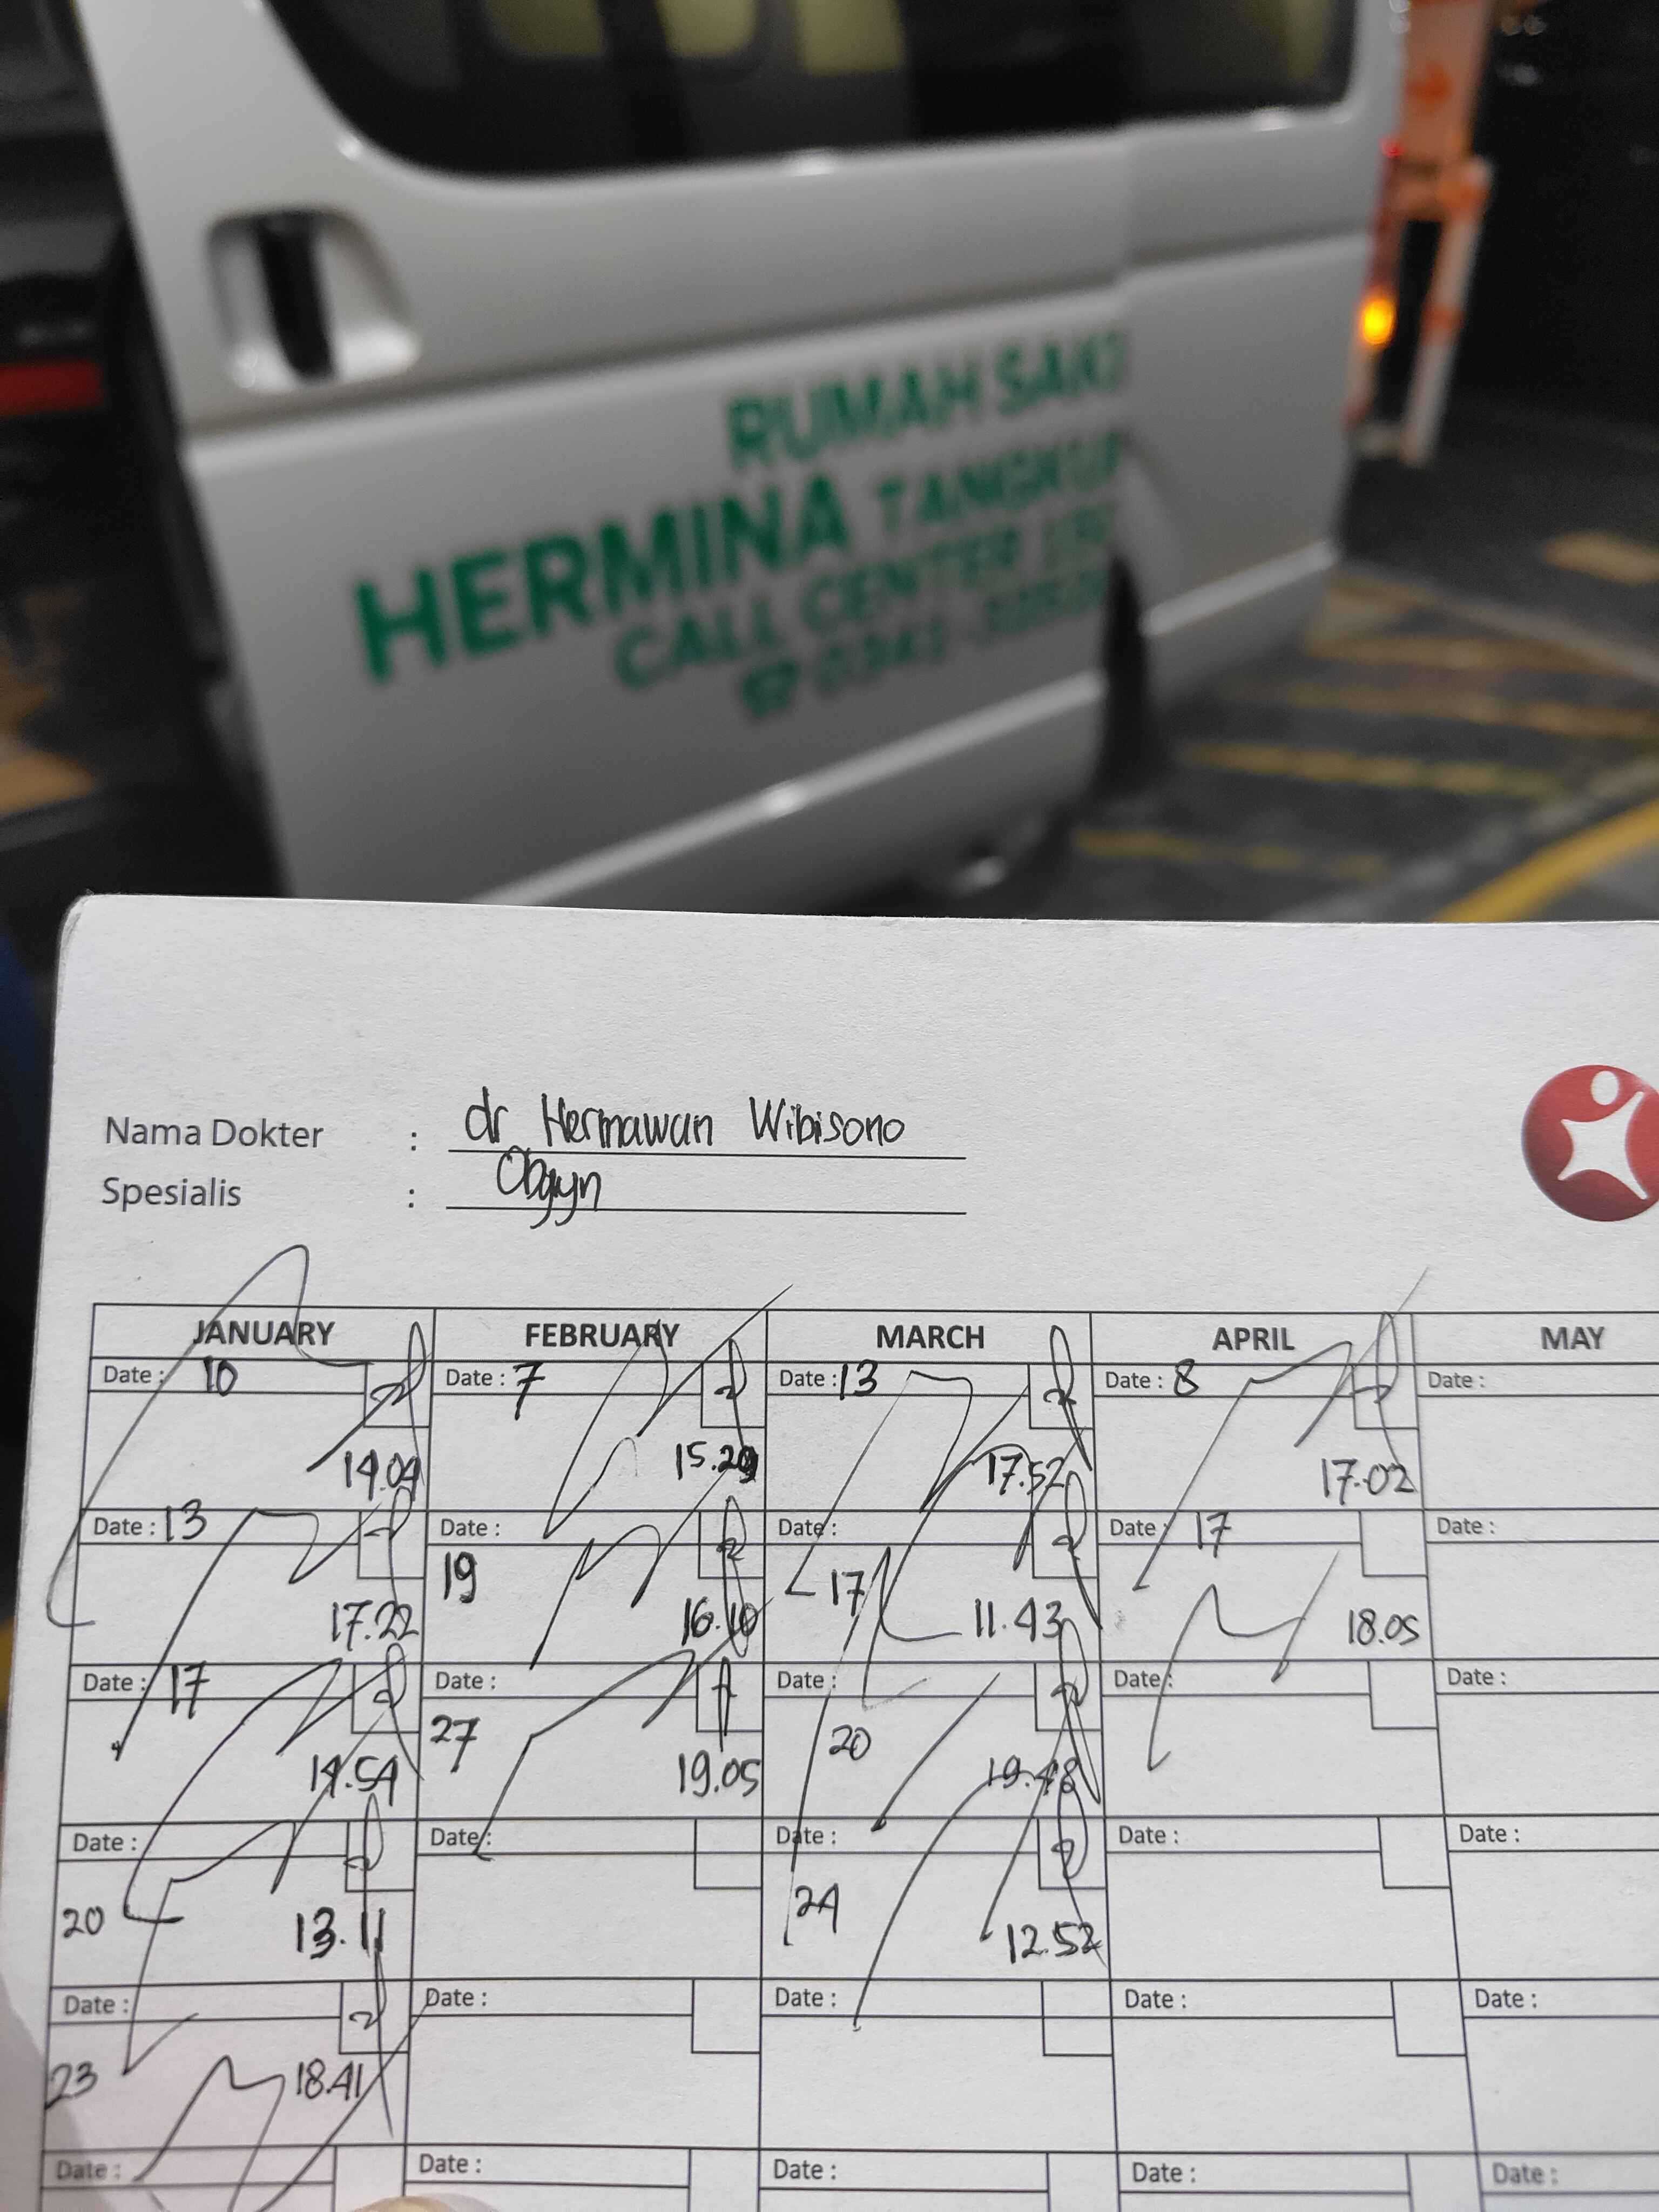 RUMAH SAKI
HERMINA TANGKUP
CALL CENTER 150
Nama Dokter : dr Hermawan Wibisono
Spesialis : Obgyn
JANUARY FEBRUARY MARCH APRIL MAY
Date : 10 Date : 7 Date : 13 Date : 8 Date :
14.04 15.29 17.52 17.02
Date : 13 Date : Date : Date : 17 Date :
19 17
17.22 16.10 11.43 18.05
Date : 17 Date : Date : Date : Date :
27 20
14.54 19.05 19.48
Date : Date : Date : Date : Date :
20 24
13.11 12.52
Date : Date : Date : Date : Date :
23 18.41
Date : Date : Date : Date : Date :